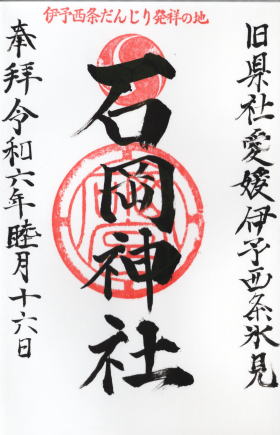 伊予西条だんじり発祥の地
旧県社愛媛伊予西条氷見
石岡神社
奉拝令和六年睦月十六日